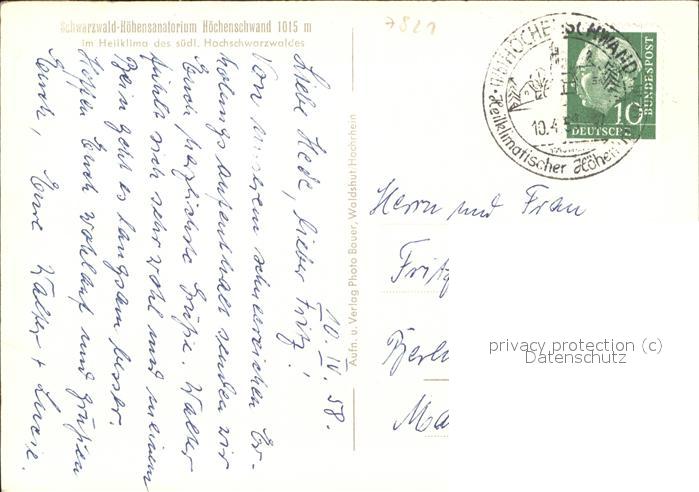 Schwarzwald-Höhensanatorium Höchenschwand 1015 m
im Heilklima des südl. Hochschwarzwaldes
7821
HÖCHENSCHWAND
Heilklimatischer Höhen
10.4.58
10
DEUTSCHE
BUNDESPOST
10. IV. 58.
Liebe Hede, lieber Fritz!
Von unserem schneereichen Er-
holungsaufenthalt senden wir
Euch herzlichste Grüße. Walter
fühlt sich sehr wohl und meinem
Bein geht es langsam besser.
Hoffen Euch wohlauf und grüßen
Euch, Eure Walter + Lucie.
Aufn. u. Verlag Photo Bauer, Waldshut/Hochrhein
Herrn und Frau
Fritz
Berli
Ma
privacy protection (c)
Datenschutz